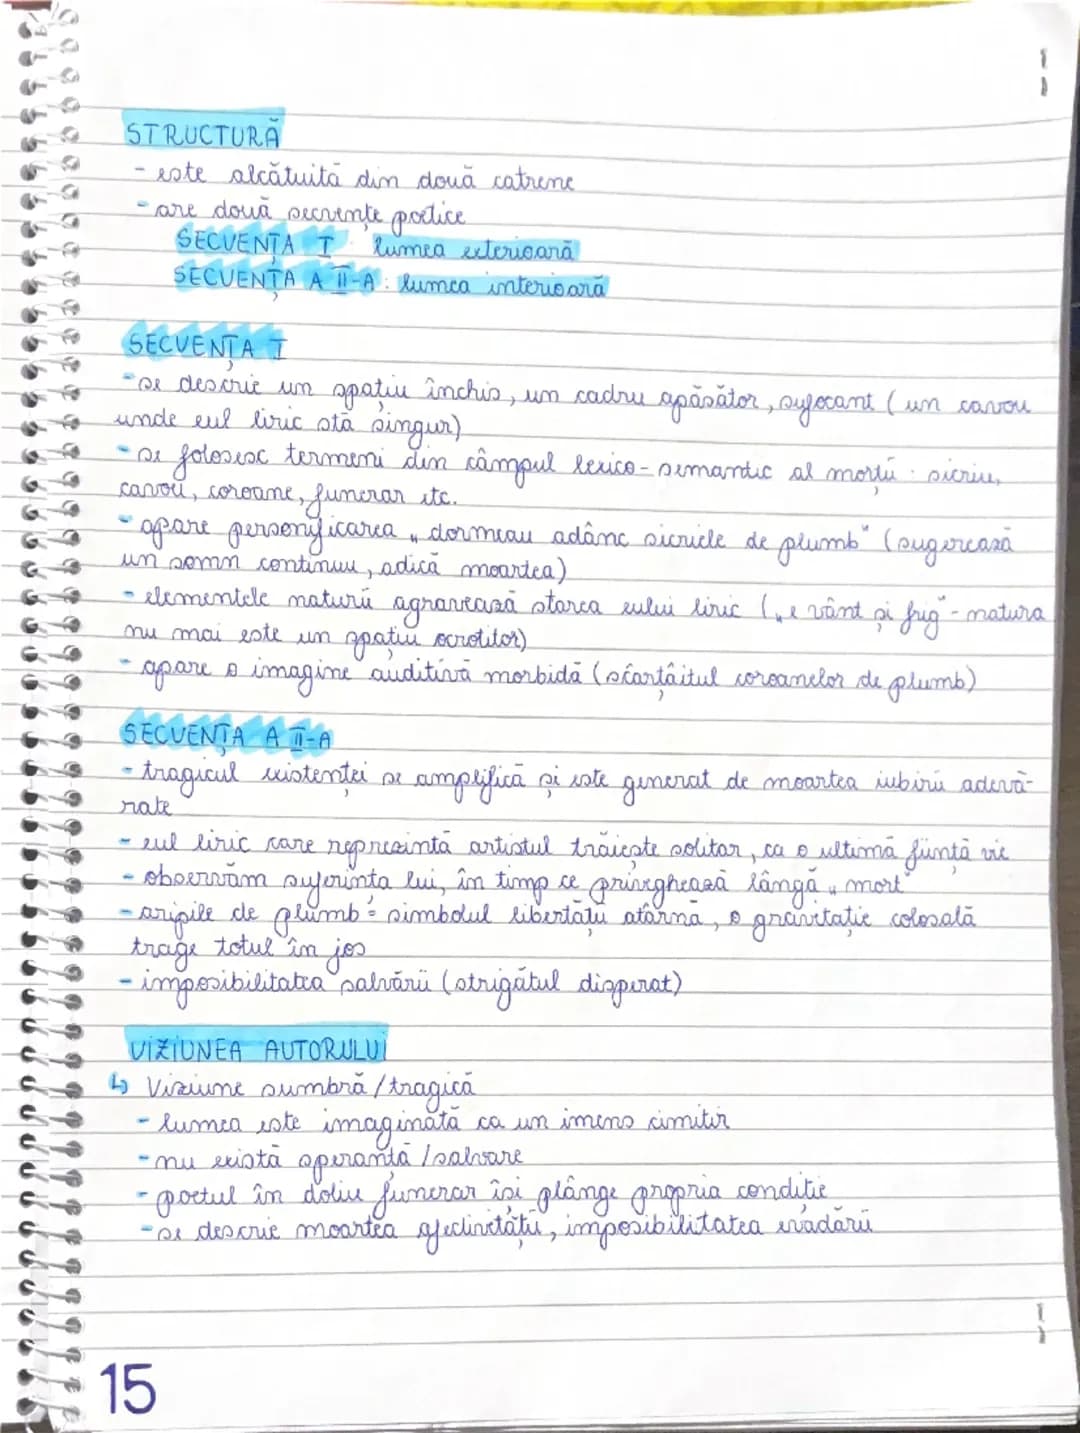 STRUCTURĂ
- este alcătuită din două catrene
- are două secvențe poetice
SECVENȚA I : lumea exterioară
SECVENȚA A II-A : lumea interioară
SECVENȚA I
- se descrie un spațiu închis, un cadru apăsător, sufocant (un cavou
unde eul liric stă singur)
- se folosesc termeni din câmpul lexico-semantic al morții : sicriu,
cavou, coroane, funerar etc.
- apare personificarea „dormeau adânc sicriele de plumb" (sugerează
un somn continuu, adică moartea)
- elementele naturii agravează starea eului liric („e vânt și frig" - natura
nu mai este un spațiu ocrotitor)
- apare o imagine auditivă morbidă (scârțâitul coroanelor de plumb)
SECVENȚA A II-A
- tragicul existenței se amplifică și este generat de moartea iubirii adevă-
rate
- eul liric care reprezintă artistul trăiește solitar, ca o ultimă ființă vie
- observăm suferința lui, în timp ce priveghează lângă „mort"
- aripile de plumb = simbolul libertății atârnă, o gravitație colosală
trage totul în jos
- imposibilitatea salvării (strigătul disperat)
VIZIUNEA AUTORULUI
↳ Viziune sumbră / tragică
- lumea este imaginată ca un imens cimitir
- nu există speranță / salvare
- poetul în doliu funerar își plânge propria condiție
- se descrie moartea afectivității, imposibilitatea evadării
15